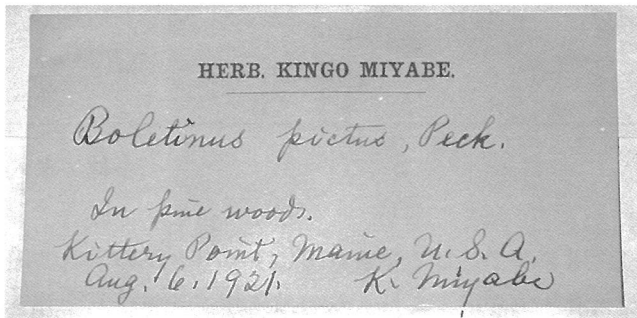 HERB. KINGO MIYABE.
Boletinus pictus, Peck.
In pine woods.
Kittery Point, Maine, U.S.A.
Aug. 6. 1921. K. Miyabe